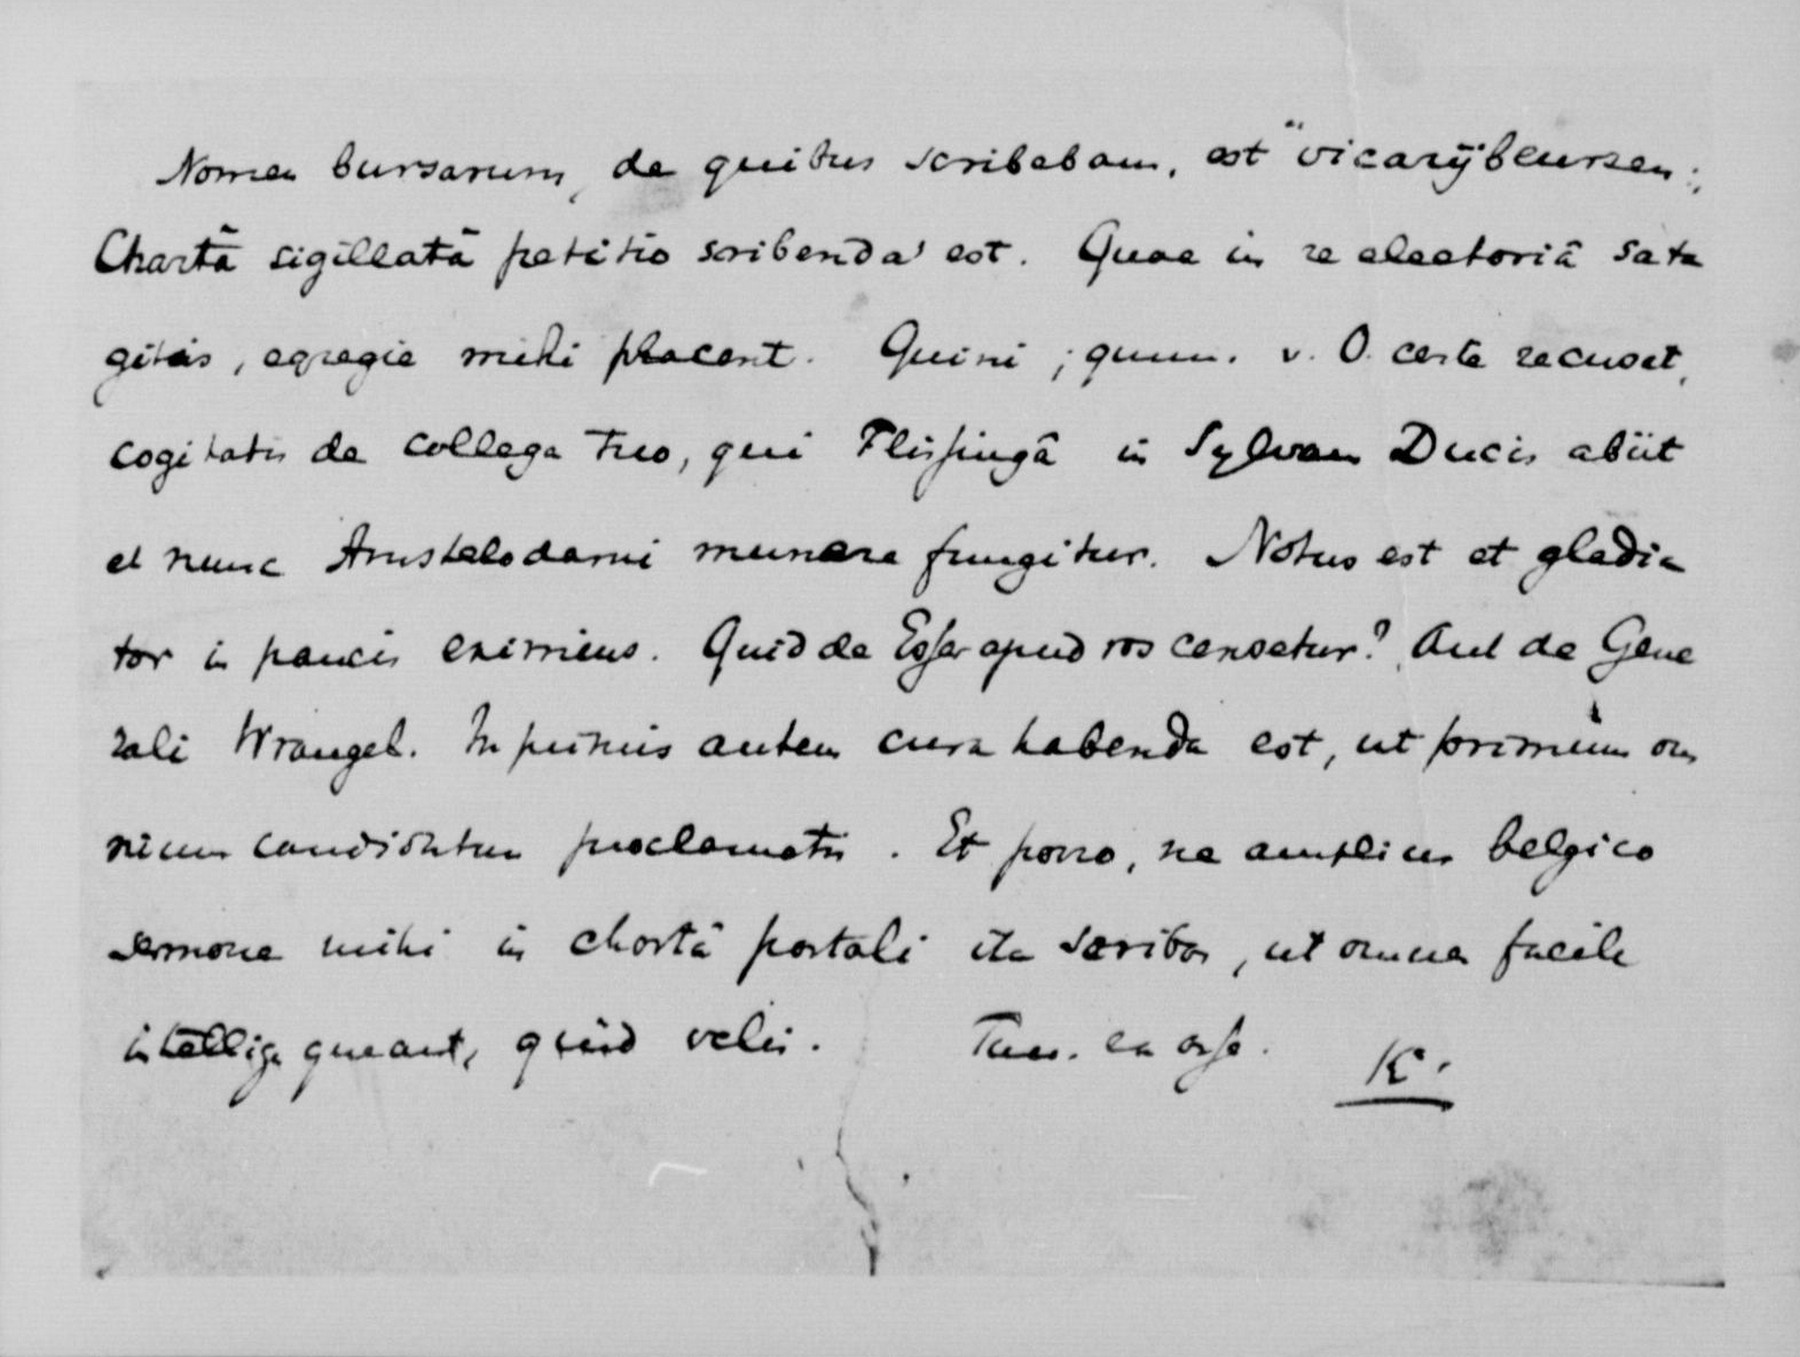 Nomen bursarum, de quibus scribebam, est "vicarÿbeursen;
Chartâ sigillatâ petitio scribenda est. Quae in re electoriâ sata
gitis, egregie mihi placent. Quini, quum v. O. certe recuset,
cogitatis de collega tuo, qui Flissingâ in Sylvam Ducis abiit
et nunc Amstelodami munere fungitur. Notus est et gladia
tor in paucis eximius. Quid de Esser apud vos censetur? Aut de Gene
rali Wrangel. In primis autem cura habenda est, ut primum om
nium candidatum proclametis. Et porro, ne amplius belgico
sermone mihi in chartâ portali ita scribas, ut omnes facile
intellige queant, quid velis. Tuus. ex asse. K.